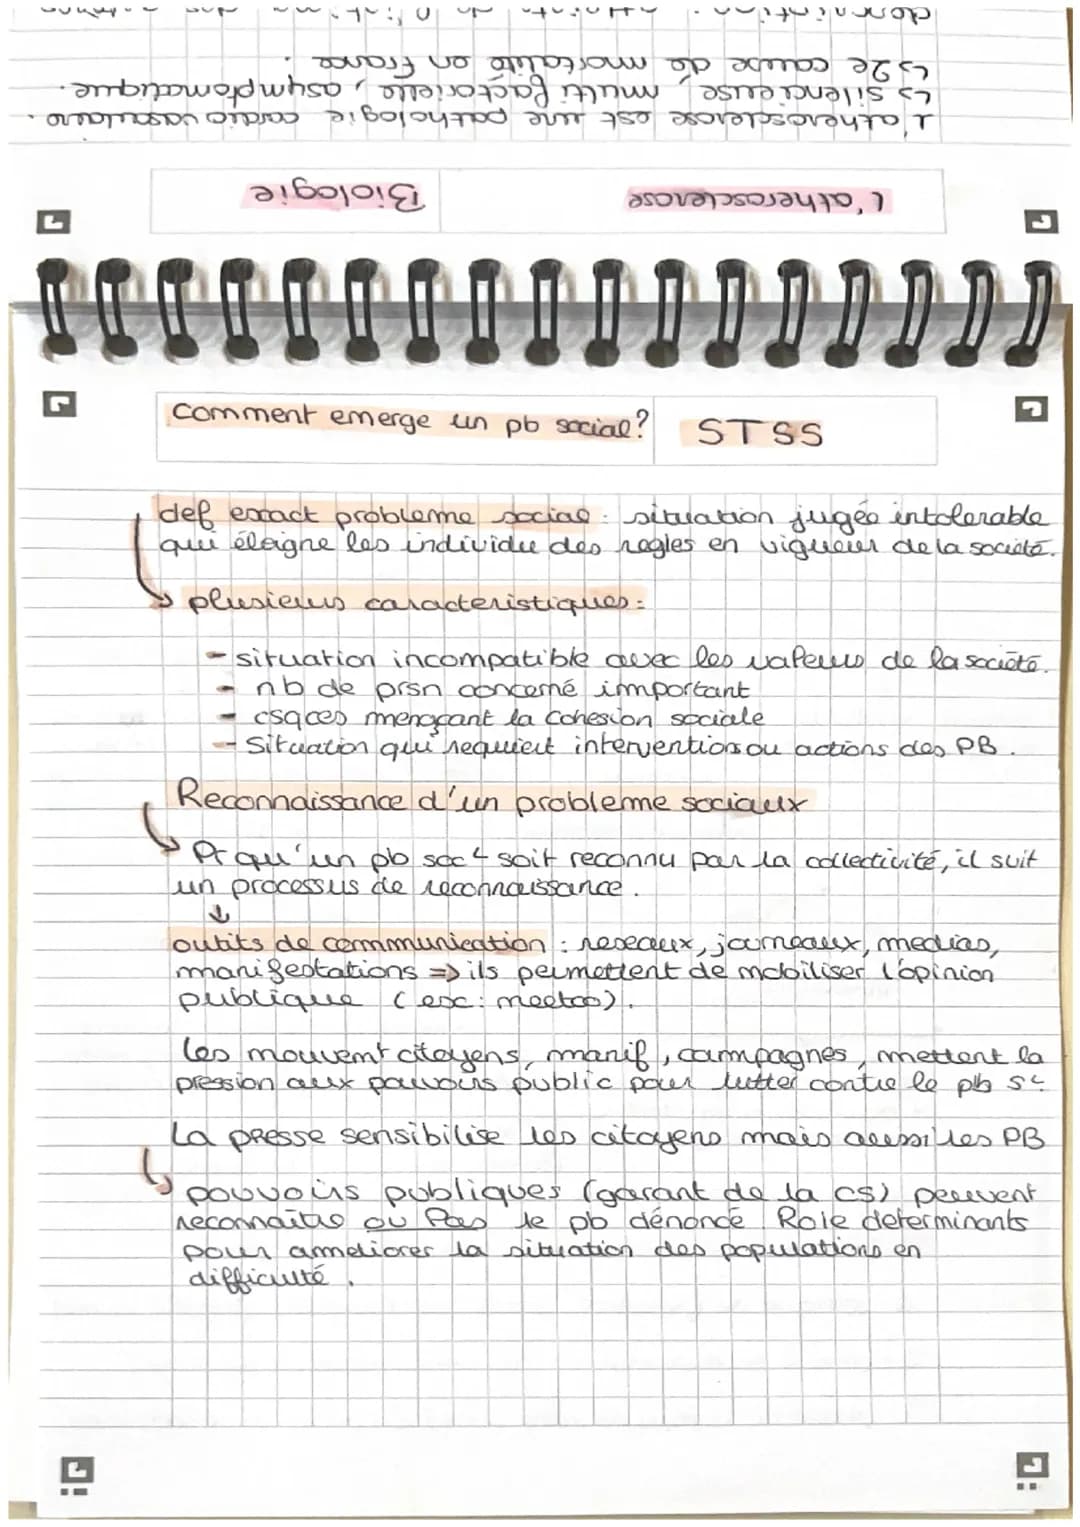 L'atherosclerose
Biologie
L'atherosclerose est une pathologie cardio vasculaire.
↳ silencieuse, multi factorielle, asymptomatique.
↳ 2e cause de mortalité en France.
comment emerge un pb social?
STSS
def exact probleme social : situation jugée intolerable
qui éloigne les individu des regles en vigueur de la société.
↳ plusieurs caracteristiques :
- situation incompatible avec les valeurs de la société.
- nb de prsn concerné important
- csqces menaçant la cohesion sociale
- Situation qui requiert interventions ou actions des PB.
Reconnaissance d'un probleme sociaux
↳ Pr qu'un pb soc soit reconnu par la collectivité, il suit
un processus de reconnaissance.
↓
outils de communication : reseaux, journeaux, medias,
manifestations => ils permettent de mobiliser l'opinion
publique (ex : meetoo).
Les mouvemt citoyens, manif, campagnes, mettent la
pression aux pouvoirs public pour lutter contre le pb sc
La presse sensibilise les citoyens mais aussi les PB
↳ pouvoirs publiques (garant de la cs) peuvent
reconnaître ou Pas le pb dénoncé. Role determinants
pour ameliorer la situation des populations en
difficulté.